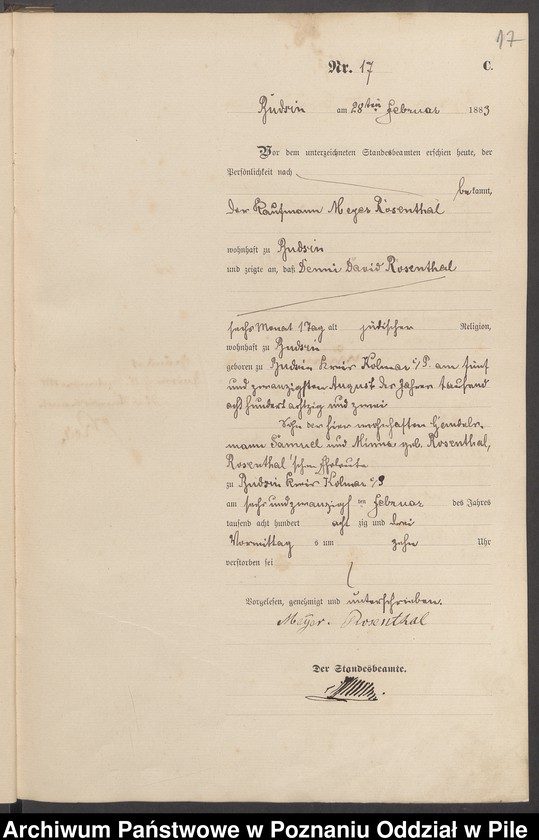 17
Nr. 17 C.
Budsin am 28ten Februar 1883
Vor dem unterzeichneten Standesbeamten erschien heute, der
Persönlichkeit nach
bekannt,
der Kaufmann Meyer Rosenthal
wohnhaft zu Budsin
und zeigte an, daß Benni David Rosenthal
sechs Monat 1 Tag alt jüdischer Religion,
wohnhaft zu Budsin
geboren zu Budsin Kreis Kolmar i/P. am fünf
und zwanzigsten August des Jahres tausend
acht hundert achtzig und zwei
Sohn der hier wohnhaften Handels-
mann Samuel und Minna geb. Rosenthal,
Rosenthal'schen Eheleute
zu Budsin Kreis Kolmar i/P
am sechs und zwanzigsten Februar des Jahres
tausend acht hundert achtzig und drei
Vormittags um zehn Uhr
verstorben sei
Vorgelesen, genehmigt und unterschrieben.
Meyer Rosenthal
Der Standesbeamte.
Archiwum Państwowe w Poznaniu Oddział w Pile